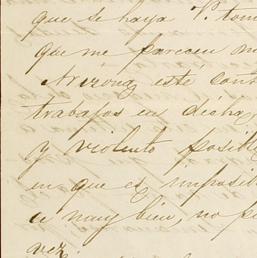 que se haya V. tom
que me parecen
Arizona esté con
trabajos en dicha
y violento posible
en que es imposib
muy bien, no p
vez